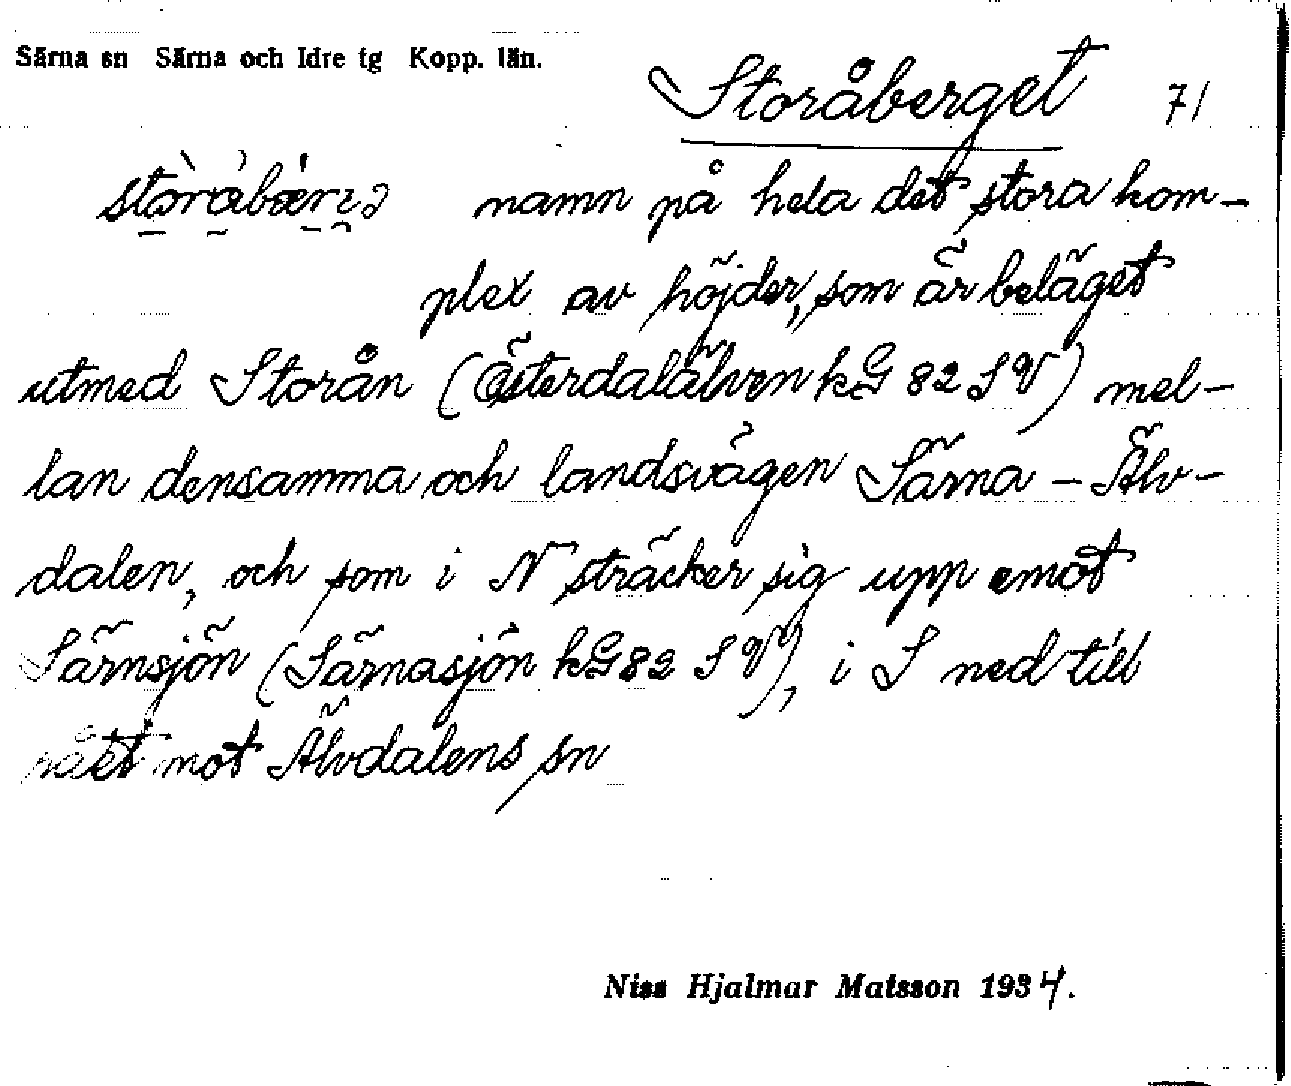 Särna sn Särna och Idre tg Kopp. län.
Storåberget 71
namn på hela det stora kom-
plex av höjder, som är beläget
utmed Storån (Österdalälven kG 82 S V) mel-
lan densamma och landsvägen Särna - Älv-
dalen, och som i N sträcker sig upp emot
Särnsjön (Särnasjön kG 82 S V), i S ned till
rået mot Älvdalens sn
Niss Hjalmar Matsson 1934.